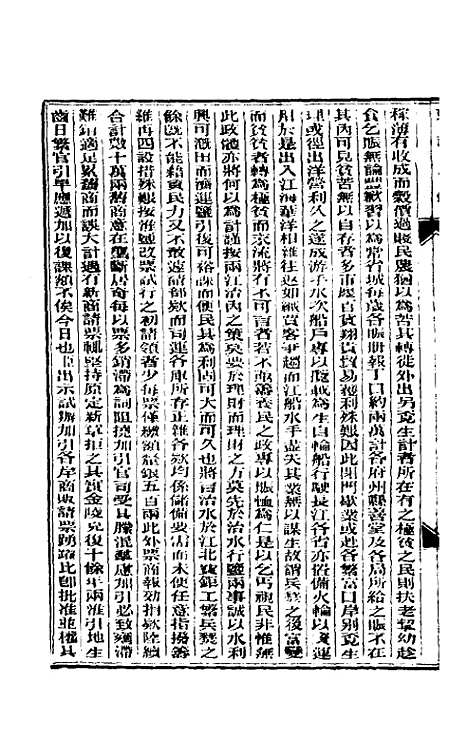 稼薄有收成而穀價過賤民農猶以為苦其轉徙外出另覓生計者所在有之極貧之民則扶老挈幼趁
食乞賑無論豐歉習以為常省城每歲各賑册報丁口約兩萬計各府州縣善堂及各局所給之賑不在
其內可見貧苦無以自存者多市廛百貨翔貴貿易獲利殊艱因此閉門歇業或赴各繁富口岸別覓生
理或徑出洋營利久之遂成游手水次船戶專以駁載為生自輪船行駛長江各省亦俗備火輪以拽運
於是出入江海華洋相雜往返如織貨客爭趨而江船水手盡失其業無以謀生故謂兵燹之後富變
而貧貧者轉為極貧而末流將有不可言者若不亟籌養民之政專以賑恤為仁是以乞丐視民非惟無
此政體亦將何以為計謹按兩江治內之策莫要於理財而理財之方莫先於治水行鹽兩事誠以水利
興可溉田而濟運鹽引復可裕課而便民其為利尚可大而可久也將言治水於江北費鉅工繁兵燹之
餘既不能藉貧民力又不敢速請部款而司運各庫所存正雜各款均係儲備要需而未便任意指撥籌
維再四設措殊艱按淮鹽改票試行之初請領者少每票僅繳額請銀五百兩此外票商報效捐款陸續
合計數十萬兩諸商意在壟斷居奇每以一票多銷滯為詞阻撓加引官司受其朦混輒慮加引必致壅滯
難銷適足累舊商而誤大計遇有新商請票輒堅持原定新章拒之其實金陵克復十餘年兩淮引地生
齒日繁官引早應遞加以復課額不俟今日也 出示試辦加引各岸商販請票踴躍比即批准並權其